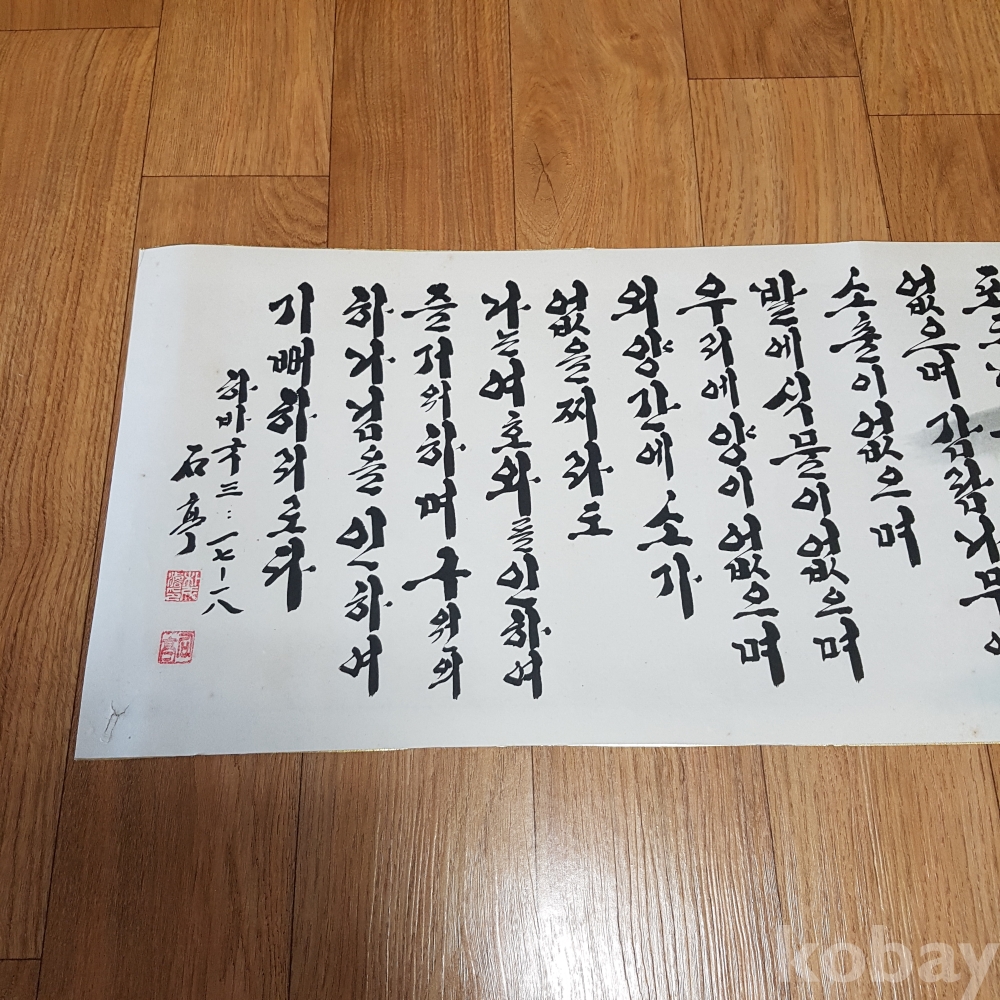 없으며 감람나무
소출이 없으며
밭에 식물이 없으며
우리에 양이 없으며
외양간에 소가
없을찌라도
나는 여호와를 인하여
즐거워하며 구원의
하나님을 인하여
기뻐하리로다
하바국 三:一七-一八
石亭
kobay